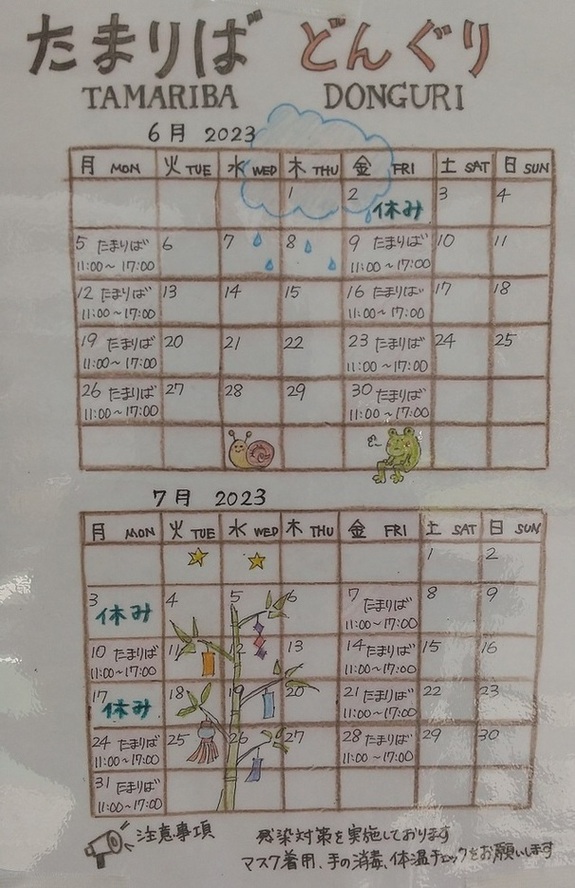 たまりば どんぐり
TAMARIBA DONGURI
6月 2023
月 MON 火 TUE 水 WED 木 THU 金 FRI 土 SAT 日 SUN
1 2 休み 3 4
5 たまりば 6 7 8 9 たまりば 10 11
11:00〜17:00 11:00〜17:00
12 たまりば 13 14 15 16 たまりば 17 18
11:00〜17:00 11:00〜17:00
19 たまりば 20 21 22 23 たまりば 24 25
11:00〜17:00 11:00〜17:00
26 たまりば 27 28 29 30 たまりば
11:00〜17:00 11:00〜17:00
7月 2023
月 MON 火 TUE 水 WED 木 THU 金 FRI 土 SAT 日 SUN
1 2
3 休み 4 5 6 7 たまりば 8 9
11:00〜17:00
10 たまりば 11 12 13 14 たまりば 15 16
11:00〜17:00 11:00〜17:00
17 休み 18 19 20 21 たまりば 22 23
11:00〜17:00
24 たまりば 25 26 27 28 たまりば 29 30
11:00〜17:00 11:00〜17:00
31 たまりば
11:00〜17:00
注意事項 感染対策を実施しております
マスク着用、手の消毒、体温チェックをお願いします